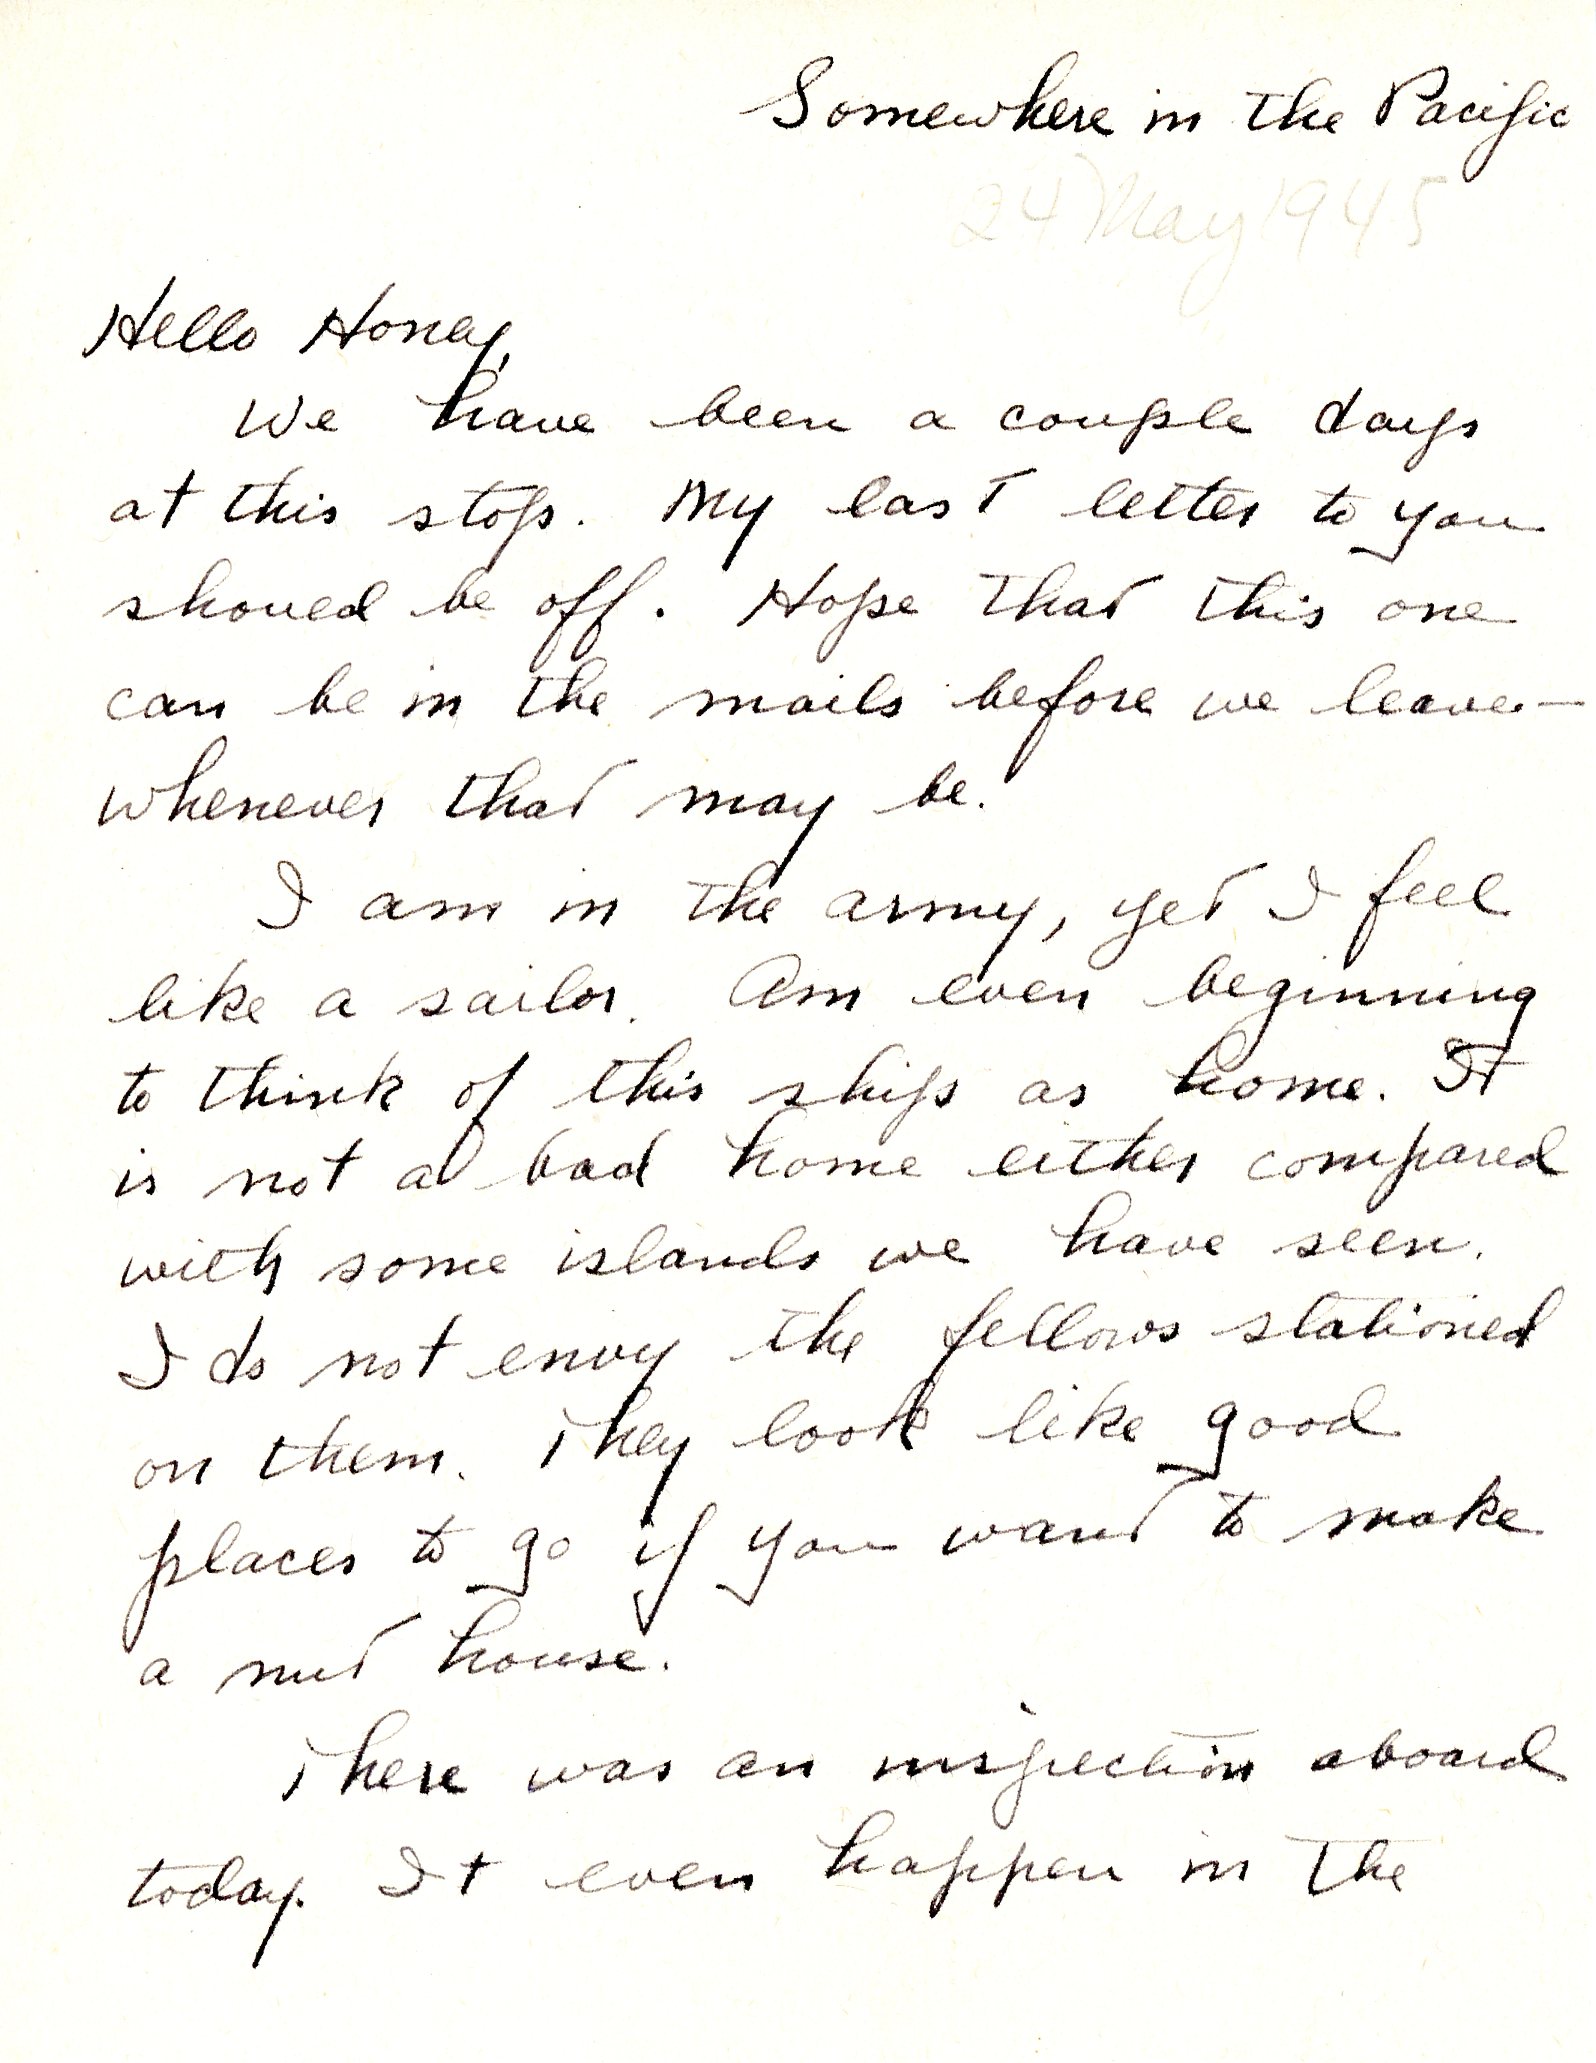 Somewhere in the Pacific
24 May 1945
Hello Honey,
We have been a couple days
at this stop. My last letter to you
shoued be off. Hope that this one
can be in the mails before we leave—
whenever that may be.
I am in the army, yet I feel
like a sailor. Am even beginning
to think of this ship as home. It
is not a bad home either compared
with some islands we have seen.
I do not envy the fellows stationed
on them. They look like good
places to go if you want to make
a nut house.
There was an inspection aboard
today. It even happen in the